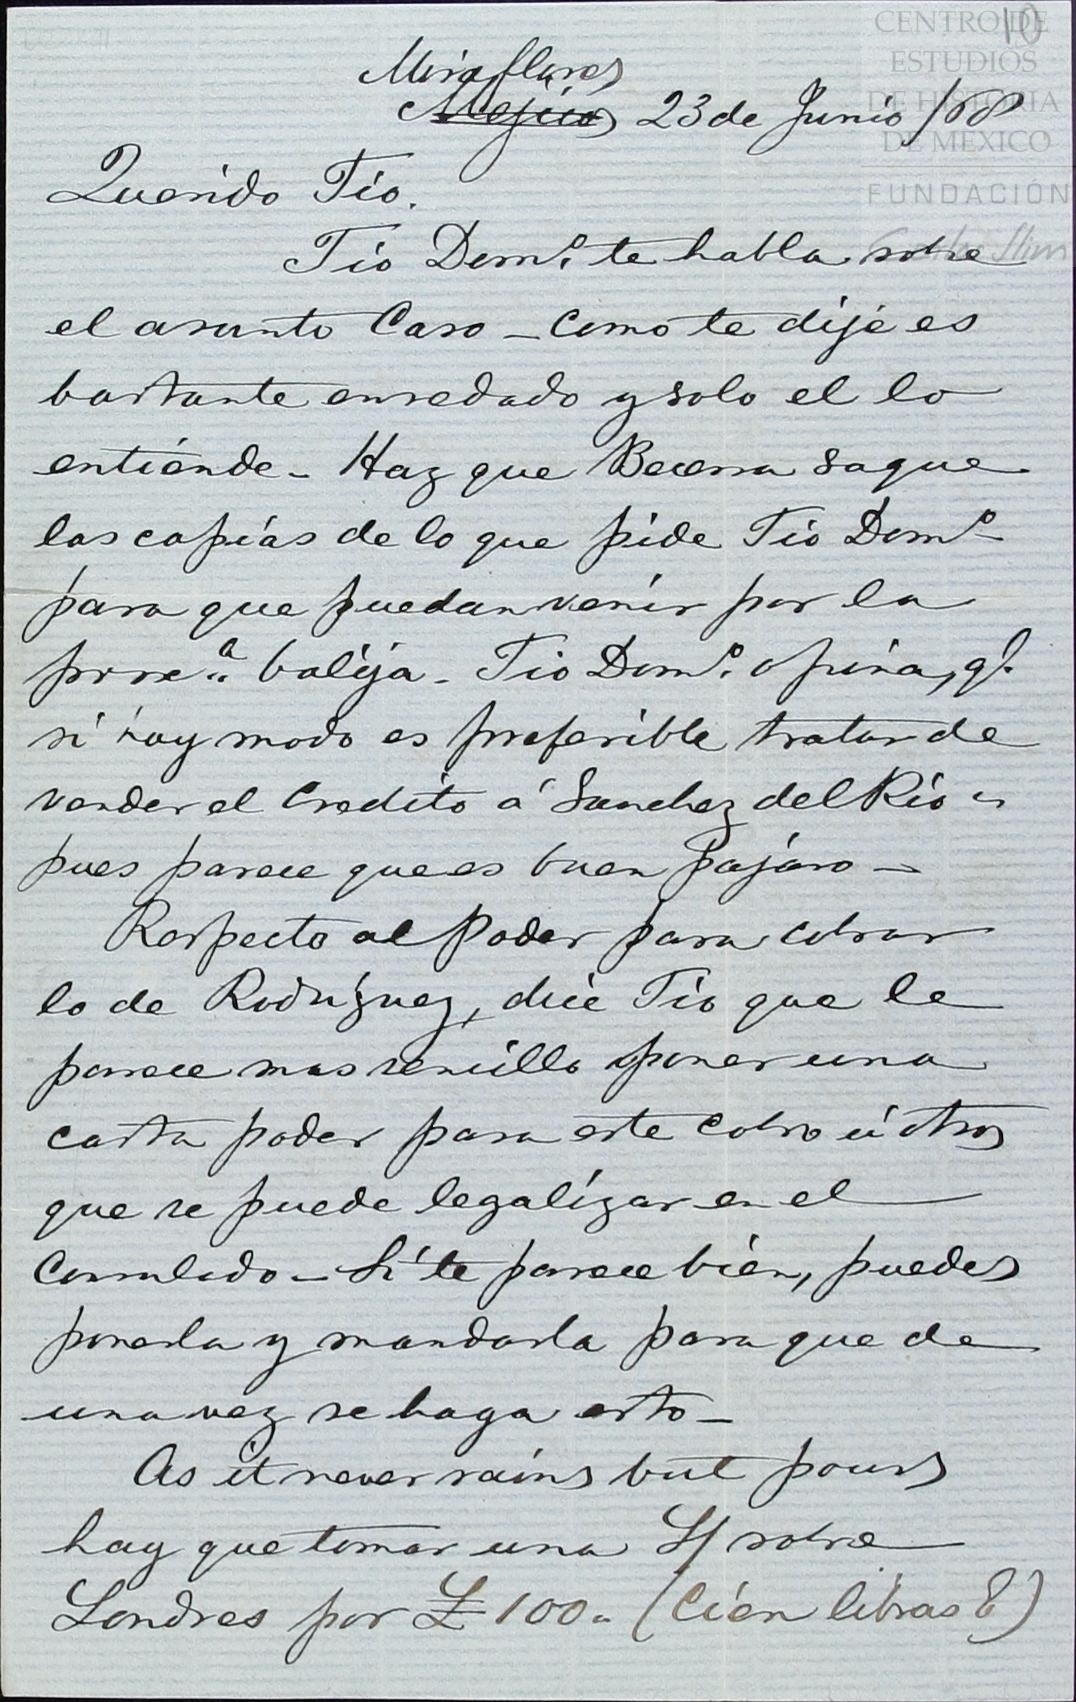 10
CENTRO DE
ESTUDIOS
DE HISTORIA
DE MEXICO
FUNDACIÓN
Carlos Slim
Miraflores
Mejico 23 de Junio /88
Querido Tio.
Tio Domº. te habla sobre
el asunto Caso – Como te dije es
bastante enredado y solo el lo
entiende – Haz que Becerra saque
las copias de lo que pide Tio Domº
para que puedan venir por la
prox.ª balija – Tio Domº. opina, q.
si hay modo es preferible tratar de
vender el credito á Sanchez del Rio –
pues parece que es buen pajaro –
Respecto al Poder para cobrar
lo de Rodriguez, dice Tio que le
parece mas sencillo poner una
carta poder para este cobro ú otros
que se puede legalizar en el
Consulado – Si te parece bien, puedes
ponerla y mandarla para que de
una vez se haga esto –
As it never rains but pours
hay que tomar una L/ sobre
Londres por £ 100 – (Cien libras E)